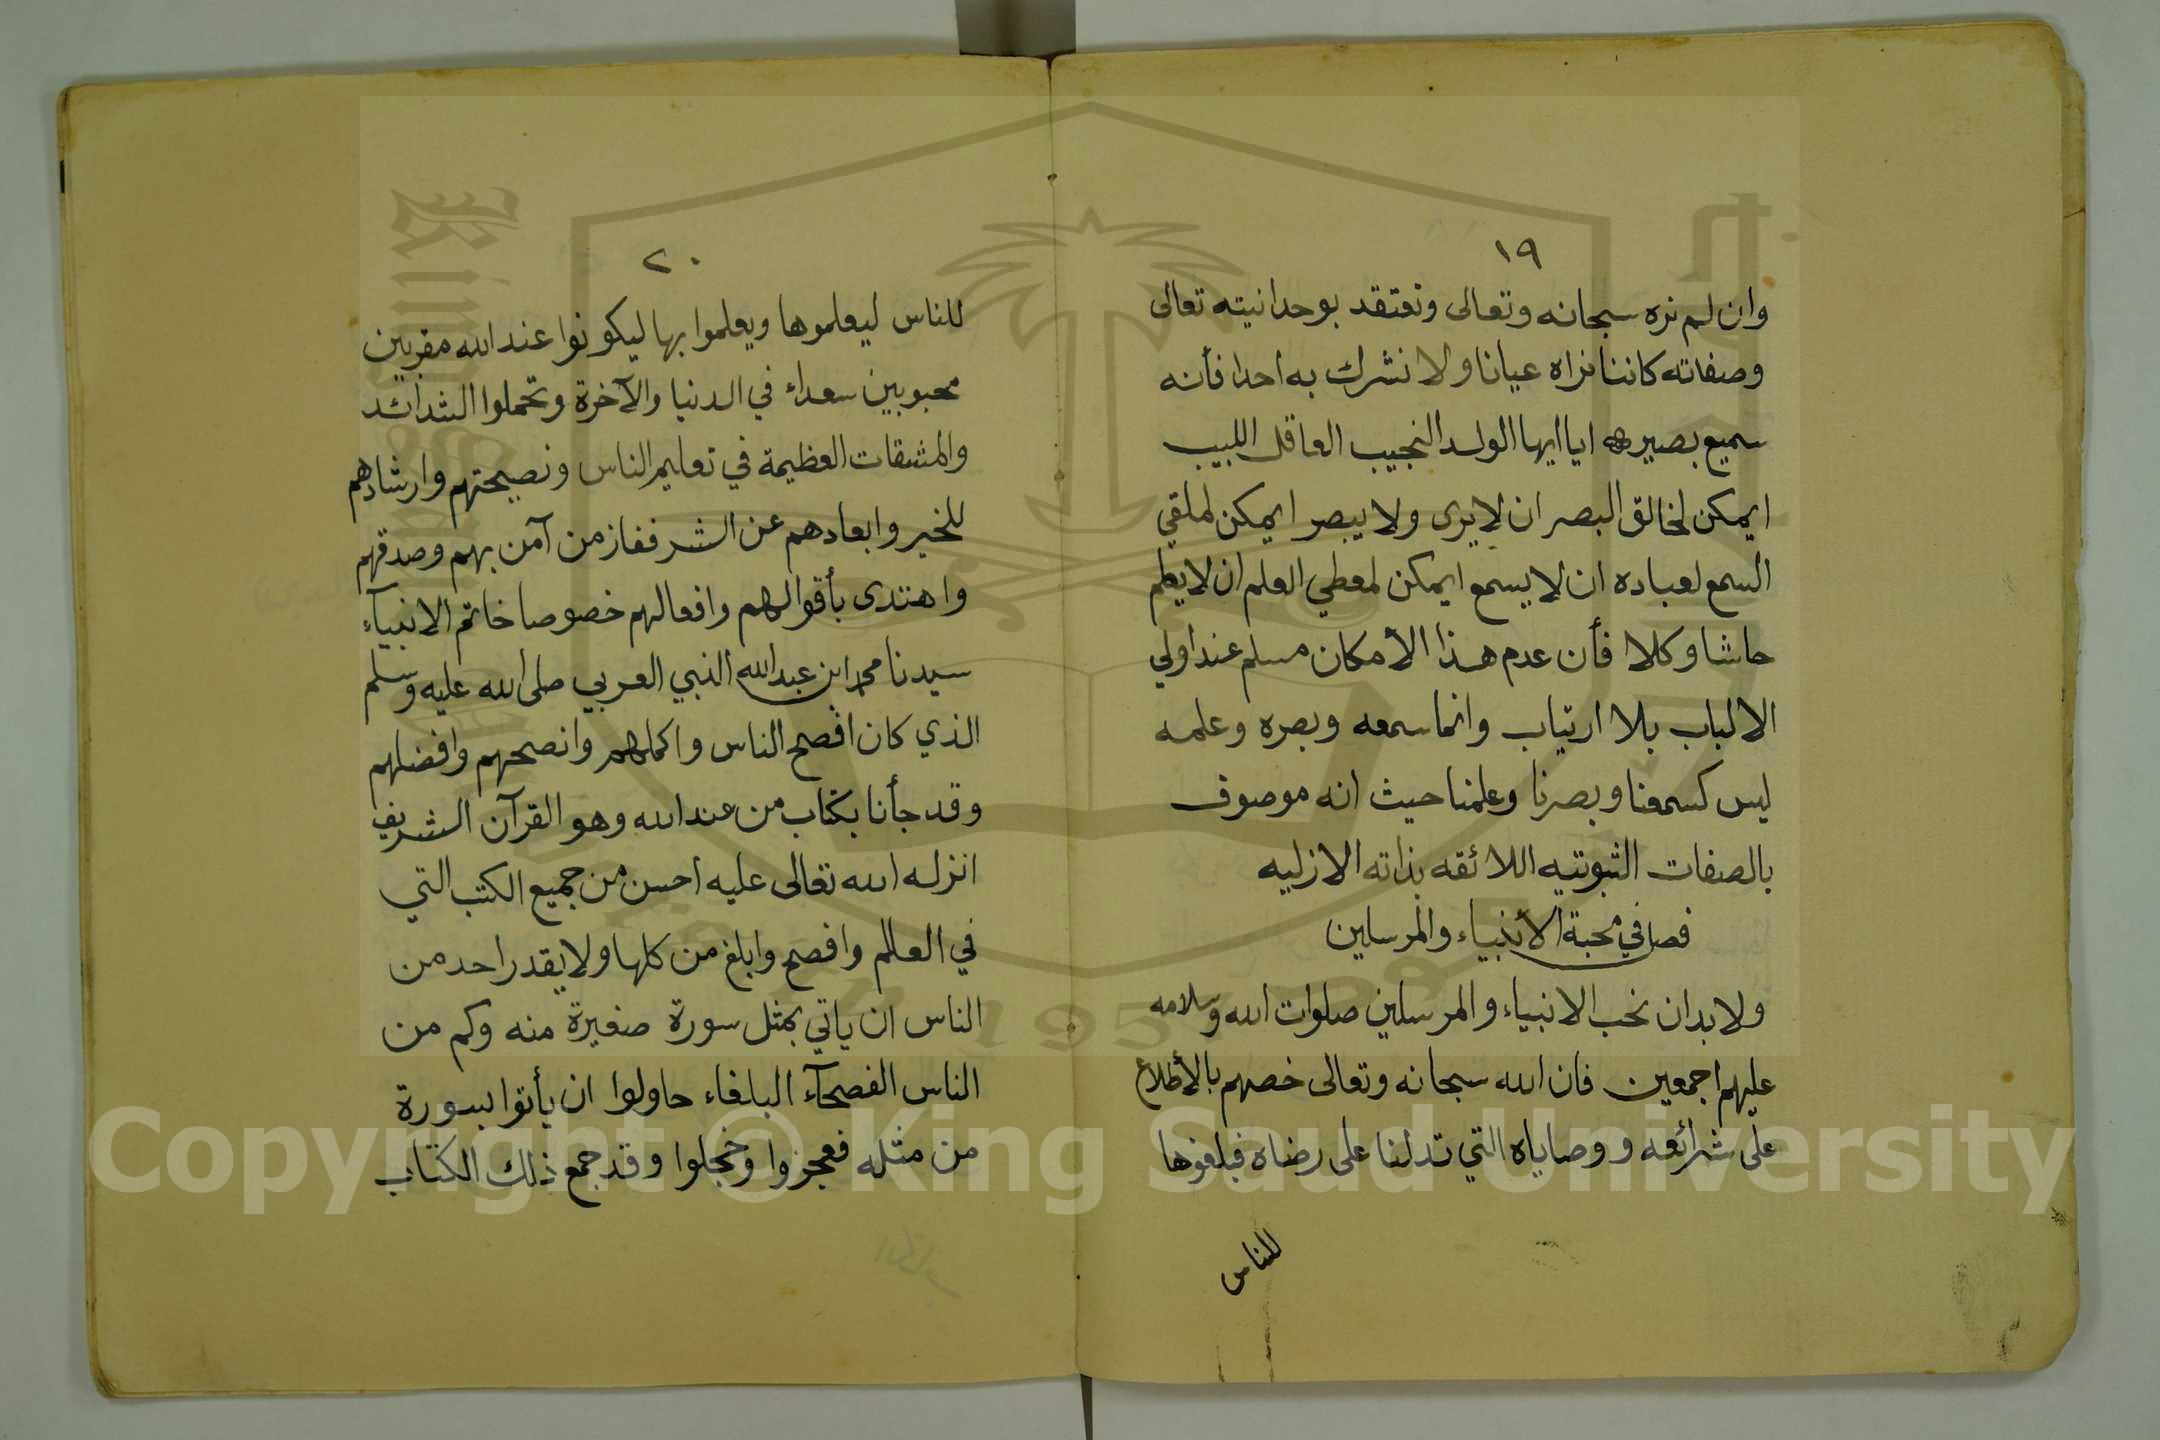 ١٩
وان لم نره سبحانه وتعالى ونعتقد بوحدانيته تعالى
وصفاته كاننا نراه عيانا ولا نشرك به احدا فأنه
سميع بصير ايا ايها الولد النجيب العاقل اللبيب
ايمكن لخالق البصر ان لا يرى ولا يبصر ايمكن لملقي
السمع لعباده ان لا يسمع ايمكن لمعطي العلم ان لا يعلم
حاشا وكلا فأن عدم هذا الأمكان مسلم عند اولي
الالباب بلا ارتياب وانما سمعه وبصره وعلمه
ليس كسمعنا وبصرنا وعلمنا حيث انه موصوف
بالصفات الثبوتيه اللائقه بذاته الازليه
فصل في محبة الأنبياء والمرسلين
ولا بد ان نحب الانبياء والمرسلين صلوات الله وسلامه
عليهم اجمعين فان الله سبحانه وتعالى خصهم بالأطلاع
على شرائعه ووصاياه التي تدلنا على رضاه فبلغوها
للناس
٢٠
للناس ليعلموها ويعلموا بها ليكونوا عند الله مقربين
محبوبين سعداء في الدنيا والآخرة وتحملوا الشدائد
والمشقات العظيمة في تعليم الناس ونصيحتهم وارشادهم
للخير وابعادهم عن الشر ففاز من آمن بهم وصدقهم
واهتدى بأقوالهم وافعالهم خصوصا خاتم الانبيآء
سيدنا محمد ابن عبد الله النبي العربي صلى الله عليه وسلم
الذي كان افصح الناس واكملهم وانصحهم وافضلهم
وقد جأنا بكتاب من عند الله وهو القرآن الشريف
انزله الله تعالى عليه احسن من جميع الكتب التي
في العالم وافصح وابلغ من كلها ولا يقدر احد من
الناس ان ياتي بمثل سورة صغيرة منه وكم من
الناس الفصحآء البلغاء حاولوا ان يأتوا بسورة
من مثله فعجزوا وخجلوا وقد جمع ذلك الكتاب
Copyright © King Saud University